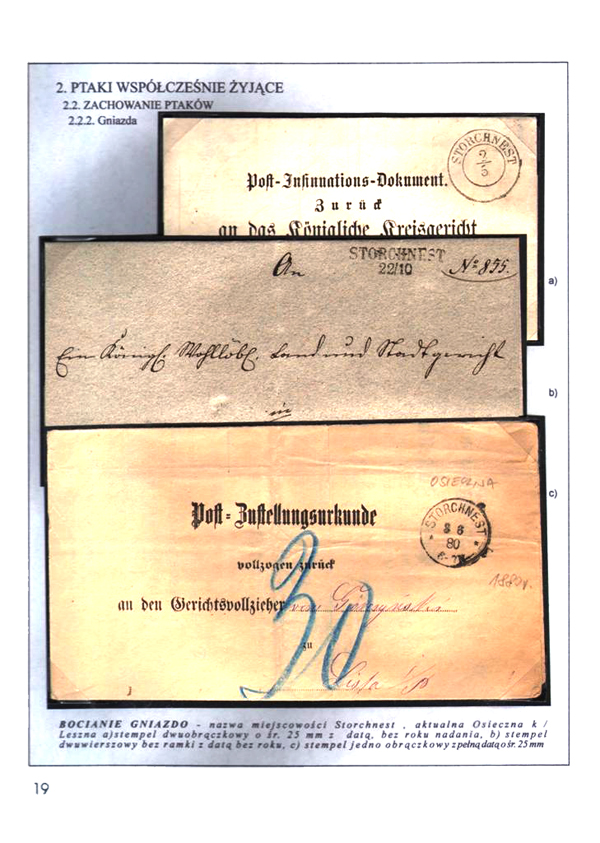 2. PTAKI WSPÓŁCZEŚNIE ŻYJĄCE
2.2. ZACHOWANIE PTAKÓW
2.2.2. Gniazda
STORCHNEST
2/5
Post-Insinuations-Dokument.
Zurück
an das Königliche Kreisgericht
a)
STORCHNEST
22/10
An
No 855.
Ein Königl. Wohllöbl. Land und Stadtgericht
in
b)
c)
OSIECZNA
STORCHNEST
8 6
80
Post-Zustellungsurkunde
vollzogen zurück
1880r.
an den Gerichtsvollzieher
zu
30
Lissa
BOCIANIE GNIAZDO - nazwa miejscowości Storchnest , aktualna Osieczna k /
Leszna a)stempel dwuobrączkowy o śr. 25 mm z datą, bez roku nadania, b) stempel
dwuwierszowy bez ramki z datą bez roku, c) stempel jedno obrączkowy z pełną datą o śr. 25 mm
19